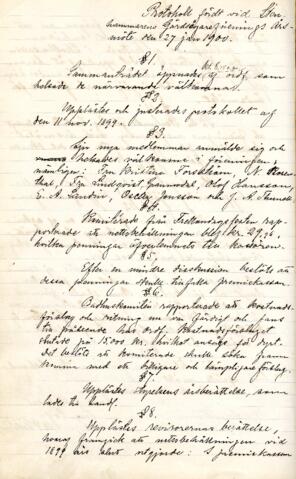 Protokoll fördt vid Sten
hammarens Gårdsägareförenings Års
möte den 27 jan 1900.
§1.
Sammanträdet öppnades af ordf. som
helsade de närvarande välkomna.
§2.
Upplästes och justerades protokollet af
den 11 nov. 1899.
§3.
nya medlemmar anmälde sig och
helsades välkomna i föreningen,
nämligen: Fru Kristina Forsblom, N. Rosen
thal, Fru Lindqvist, Olof Larsson,
E. A. Lundin, Oscar Jonsson och J. A. Thunell
§4.
från Trettondagsfesten rap-
porterade att nettobehållningen blef kr. 29,96
hvilka penningar öfverlemnats till kassören.
§5.
Efter en mindre diskussion beslöts att
dessa penningar skulle tillfalla premiekassan.
§6.
Badhuskomitén rapporterade att kostnads-
förslag och ritning nu var färdigt och fans
till påseende hos ordf. Kostnadsförslaget
slutade på 15.000 kr. hvilket ansågs för dyrt
det beslöts att komiterade skulle söka fram
komma med ett billigare och lämpligare förslag.
§7.
Upplästes styrelsens årsberättelse, som
lades till handl.
§8.
Upplästes revisorernas berättelse,
hvaraf framgick att nettobehållningen vid
1899 års slut utgjorde: I premiekassan